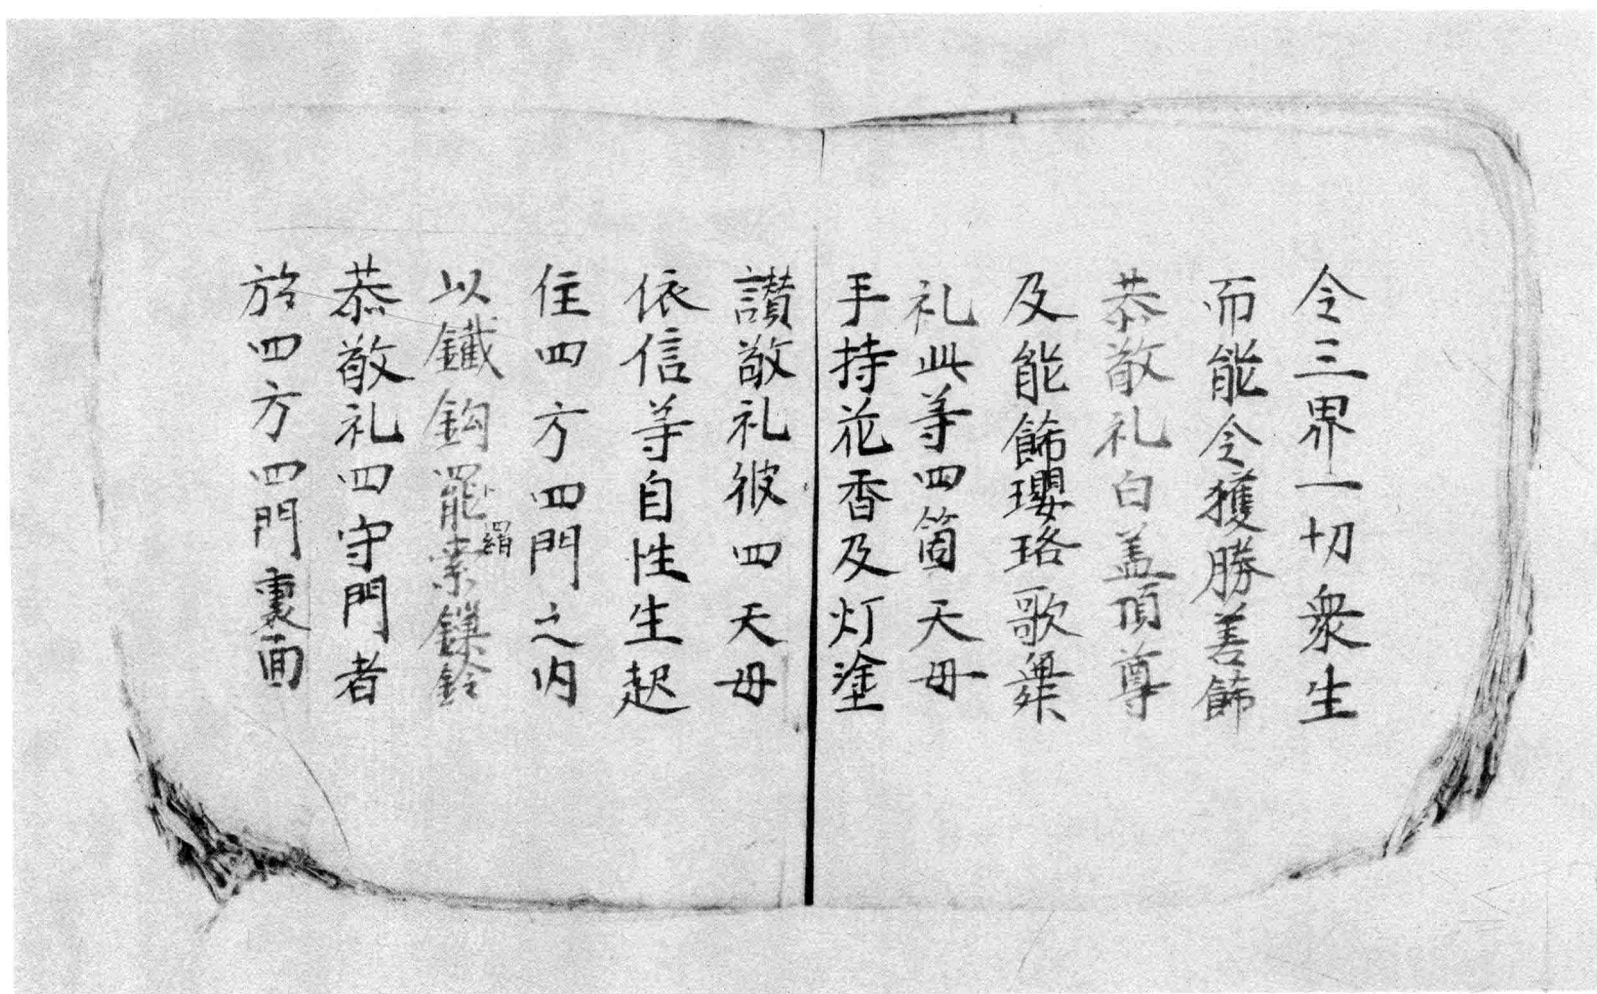 令三界一切衆生
而能令獲勝善飾
恭敬礼白盖頂尊
及能飾瓔珞歌舞
礼此等四箇天母
手持花香及灯塗
讃敬礼彼四天母
依信等自性生起
住四方四門之内
以鐵鈎罷索鏁鈴
羂
恭敬礼四守門者
於四方四門裏面